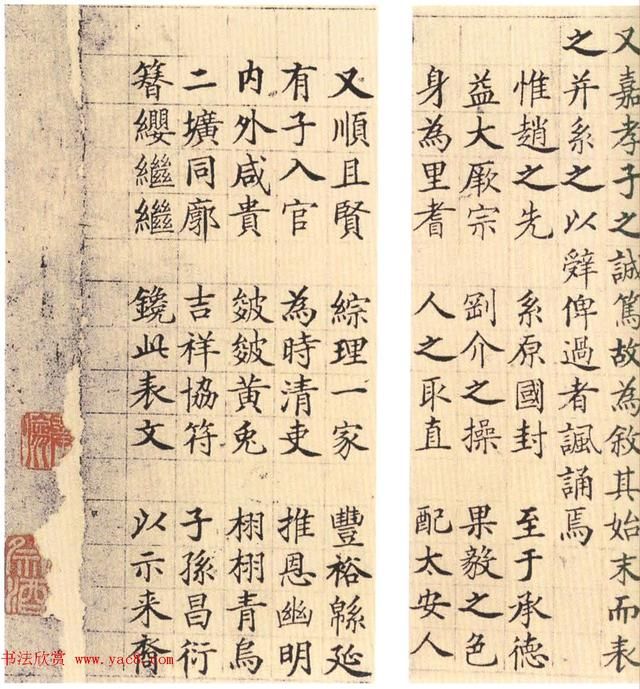 又嘉孝子之誠篤故為敘其始末而表
之并系之以辤俾過者諷誦焉
惟趙之先 系原國封 至于承德
益大厥宗 剛介之操 果毅之色
身為里耆 人之取直 配太安人
又順且賢 綜理一家 豐裕緜延
有子入官 為時清吏 推恩幽明
内外咸貴 皴皴黄兎 栩栩青烏
二壙同廓 吉祥協符 子孫昌衍
簪纓繼繼 鑱此表文 以示来裔
书法欣赏 www.yac8.com